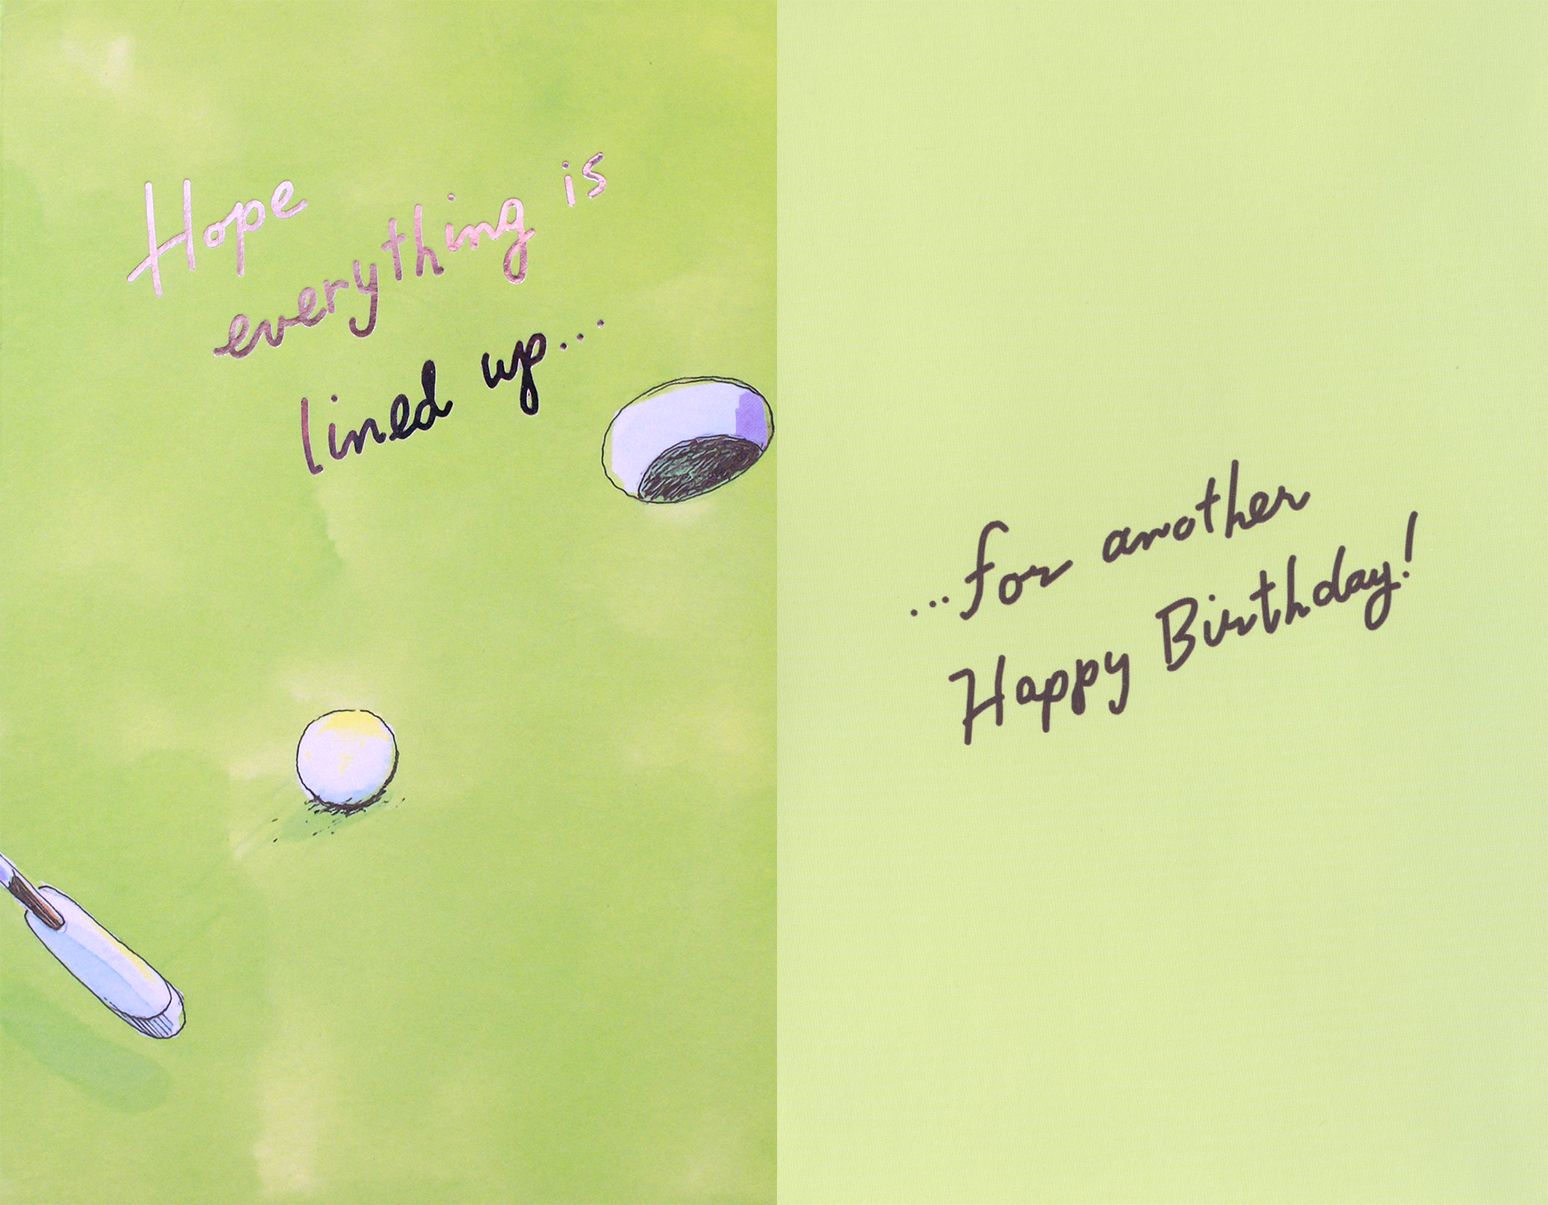 Hope
everything is
lined up...
...for another
Happy Birthday!